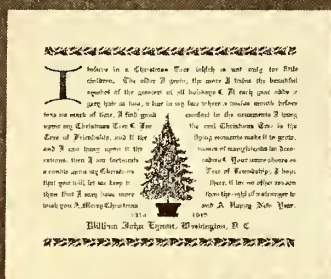 I believe in a Christmas Tree which is not only for little
children. The older I grow, the more I value the beautiful
symbol of the greatest of all holidays. If each year adds a
gray hair or two, a line in my face where a twelve month before
was no mark of time, I find good comfort in the ornaments I hang
upon my Christmas Tree. For the real Christmas Tree is the
Tree of Friendship, and if the
and I can hang upon it the
rations, then I am fortunate
a candle upon my Christmas Tree of Friendship, I hope
that you will let me keep it there, if for no other reason
than that I may have more than the right of a stranger to
wish you A Merry Christmas and A Happy New Year.
1914 1915
William John Eynon, Washington, D C